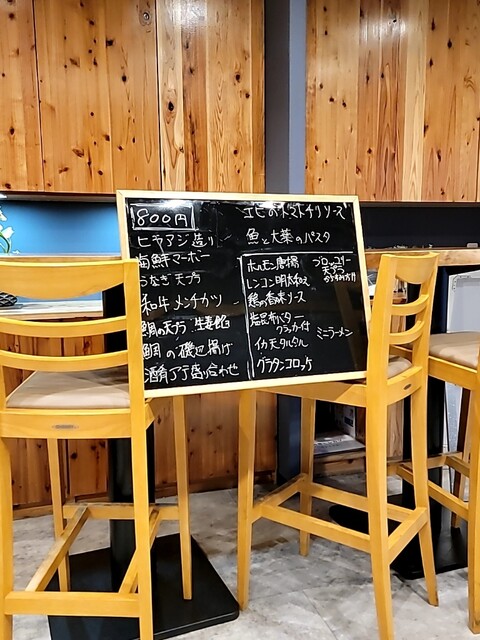 800円
ヒラアジ造り
海鮮マーボー
うなぎ天プラ
和牛メンチカツ
鯛の天プラ 生姜餡
鯛の磯辺揚げ
酒肴7丁盛り合わせ
エビのトマトチリソース
魚と大葉のパスタ
ホルモン唐揚
レンコン明太和え
鶏の香味ソース
塩昆布バター
クラッカー付
イカ天タルタル
グラタンコロッケ
ブロッコリー
天プラ
ミニラーメン